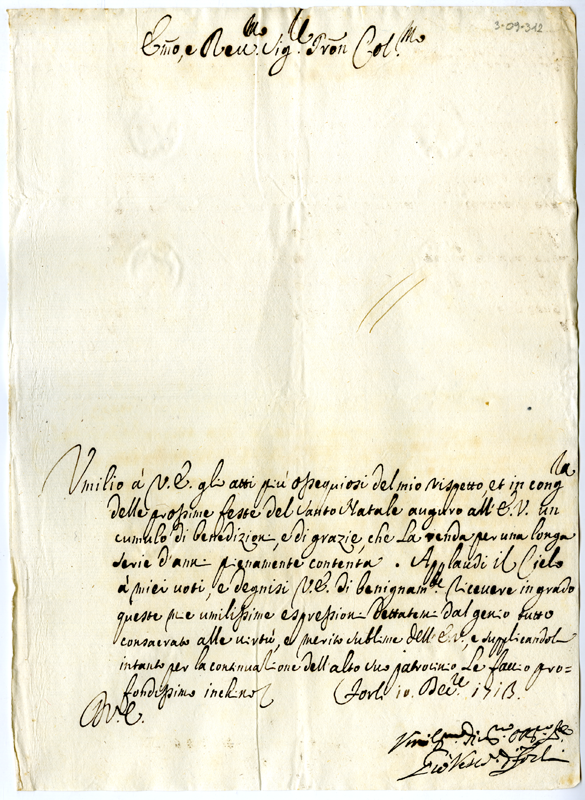 3-09-312
Emo, e Reu.mo Sig.r Pron Col.mo
Vmilio á V.E. gli atti più ossequiosi del mio rispetto, et in cong.ra
delle prossime feste del Santo Natale auguro all'E.V. un
cumulo di benedizioni, e di grazie, che La renda per una longa
serie d'anni pienamente contenta. Applaudi il Cielo
á miei uoti, e degnisi V.E. di benignam.te riceuere in grado
queste mie umilissime espressioni dettatemi dal genio tutto
consacrato alle uirtù, e merito sublime dell'E.V., e supplicandola
intanto per la continuazione dell'alto suo patrocinio Le faccio pro=
fondissimo inchino
Forlì 10. Dec.re 1713.
D.V.E.
Vmil.mo di.mo
Vesc.o di Forlì